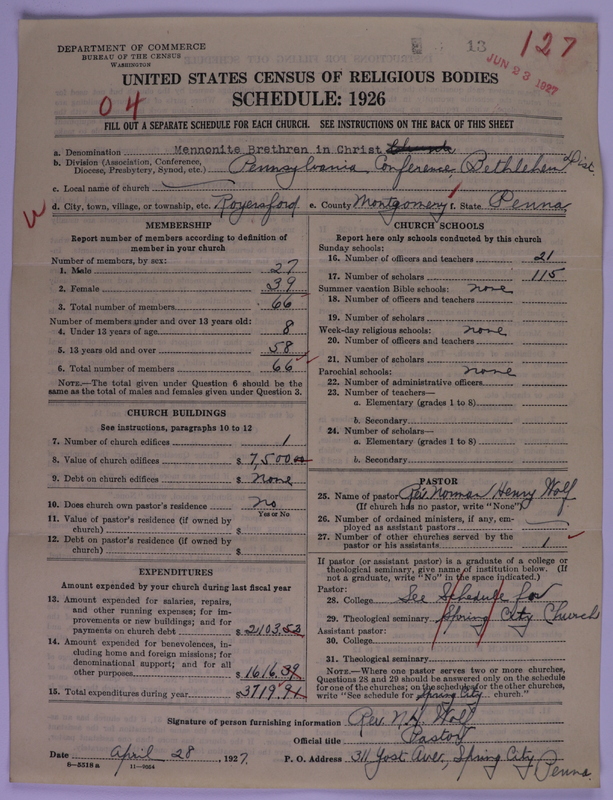 DEPARTMENT OF COMMERCE
BUREAU OF THE CENSUS
WASHINGTON
13
127
JUN 23 1927
UNITED STATES CENSUS OF RELIGIOUS BODIES
SCHEDULE: 1926
04
FILL OUT A SEPARATE SCHEDULE FOR EACH CHURCH. SEE INSTRUCTIONS ON THE BACK OF THIS SHEET
a. Denomination Mennonite Brethren in Christ
b. Division (Association, Conference, Diocese, Presbytery, Synod, etc.) Pennsylvania Conference, Bethlehem Dist.
c. Local name of church
W
d. City, town, village, or township, etc. Royersford e. County Montgomery f. State Penna
MEMBERSHIP
Report number of members according to definition of
member in your church
Number of members, by sex:
1. Male 27
2. Female 39
3. Total number of members 66
Number of members under and over 13 years old:
4. Under 13 years of age 8
5. 13 years old and over 58
6. Total number of members 66
NOTE.—The total given under Question 6 should be the
same as the total of males and females given under Question 3.
CHURCH BUILDINGS
See instructions, paragraphs 10 to 12
7. Number of church edifices 1
8. Value of church edifices $ 7,500.00
9. Debt on church edifices $ none
10. Does church own pastor's residence? no
Yes or No
11. Value of pastor's residence (if owned by
church) $
12. Debt on pastor's residence (if owned by
church) $
EXPENDITURES
Amount expended by your church during last fiscal year
13. Amount expended for salaries, repairs,
and other running expenses; for im-
provements or new buildings; and for
payments on church debt $ 2103.52
14. Amount expended for benevolences, in-
cluding home and foreign missions; for
denominational support; and for all
other purposes $ 1616.39
15. Total expenditures during year $ 3719.91
CHURCH SCHOOLS
Report here only schools conducted by this church
Sunday schools:
16. Number of officers and teachers 21
17. Number of scholars 115
Summer vacation Bible schools: none
18. Number of officers and teachers
19. Number of scholars
Week-day religious schools: none
20. Number of officers and teachers
21. Number of scholars
Parochial schools: none
22. Number of administrative officers
23. Number of teachers—
a. Elementary (grades 1 to 8)
b. Secondary
24. Number of scholars—
a. Elementary (grades 1 to 8)
b. Secondary
PASTOR
25. Name of pastor Rev. Norman Henry Wolf
(If church has no pastor, write "None")
26. Number of ordained ministers, if any, em-
ployed as assistant pastors
27. Number of other churches served by the
pastor or his assistants 1
If pastor (or assistant pastor) is a graduate of a college or
theological seminary, give name of institution below. (If
not a graduate, write "No" in the space indicated.)
Pastor:
28. College See Schedule for
29. Theological seminary Spring City Church
Assistant pastor:
30. College
31. Theological seminary
NOTE.—Where one pastor serves two or more churches,
Questions 28 and 29 should be answered only on the schedule
for one of the churches; on the schedules for the other churches,
write "See schedule for Spring City church."
Signature of person furnishing information Rev. N.H. Wolf
Official title Pastor
Date April 28, 1927. P. O. Address 311 Yost Ave., Spring City Penna.
8—5318 a 11—9084